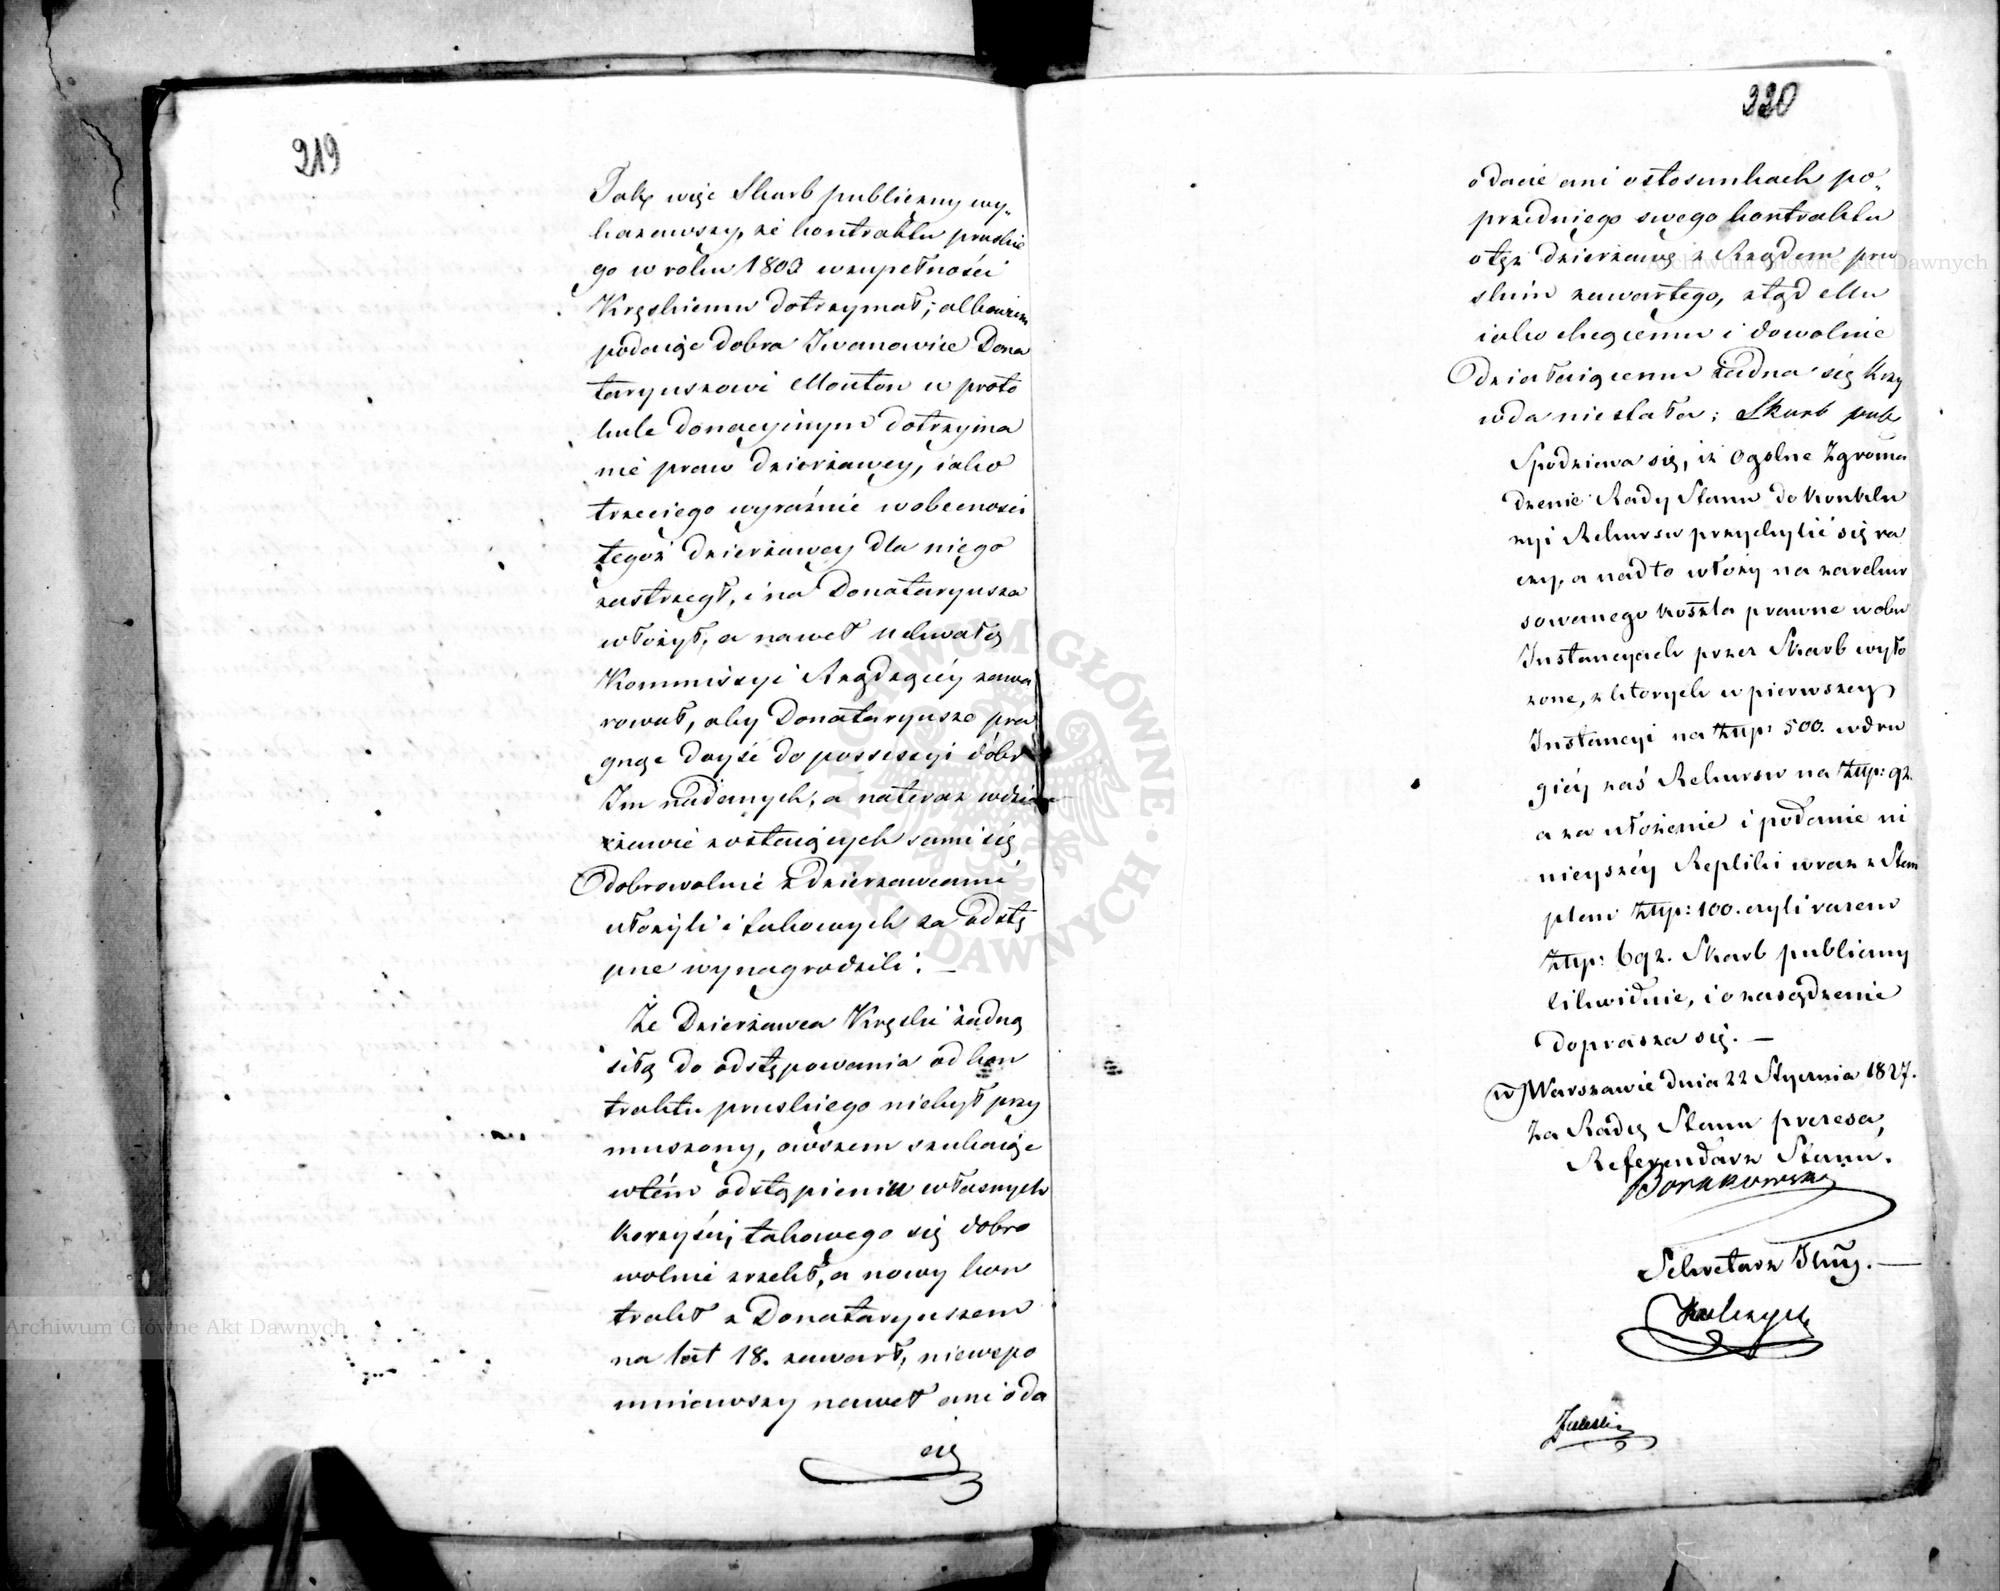 219
Tak więc Skarb publiczny wy„
kazawszy, że kontraktu pruskie
go w roku 1803 w zupełności
Kręskiemu dotrzymał; albowiem
podaiąc dobra Iwanowice Dona
taryuszowi Mouton w proto
kule donacyinym dotrzyma
nie praw dzierżawcy, iako
trzeciego wyraźnie w obecności
tegoż dzierżawcy dla niego
zastrzegł, i na Donataryusza
włożył, a nawet Uchwałą
Kommissyi Rządzącéy zawa
rował, aby Donataryusze pra
gnąc dóyść do possessyi dóbr
Im nadanych, a na teraz w dzier
żawie zostaiących sami się
dobrowolnie z dzierżawcami
ułożyli i takowych za odstę
pne wynagrodzili. —
Że Dzierżawca Kręski żadną
siłą do odstępowania od kon
traktu pruskiego nie był przy
muszony, owszem szukaiąc
w tém odstąpieniu własnych
korzyści, takowego się dobro
wolnie zrzekł, a nowy kon
trakt z Donataryuszem
na lat 18. zawarł, niewspo
mniawszy nawet ani o da
cie
220
o dacie ani o stosunkach po„
przedniego swego kontraktu
o tęż dzierżawę z Rządem pru
skim zawartego, ztąd Mu
iako chcącemu i dowolnie
działaiącemu żadna się krzy
wda niestała; Skarb pub.
Spodziewa się, iż Ogólne Zgroma
dzenie Rady Stanu do konklu
zyi Rekursu przychylić się ra
czy, a nadto włoży na zarekur
sowanego koszta prawne w obu
Instancyach przez Skarb wyło
żone, z których w pierwszey
Instancyi na złłp: 500. w dru
giéy zaś Rekursu na złłp: 92.
a za ułożenie i podanie ni
nieyszéy Repliki wraz z Stem
plem złłp: 100. czyli razem
złłp: 692. Skarb publiczny
likwiduie, i o zasądzenie
doprasza się. —
w Warszawie dnia 22 Stycznia 1827.
Za Radcę Stanu prezesa,
Referendarz Stanu.
Borakowski
Sekretarz Jlny. —
Archiwum Główne Akt Dawnych
Archiwum Główne Akt Dawnych
ARCHIWUM GŁÓWNE
AKT DAWNYCH